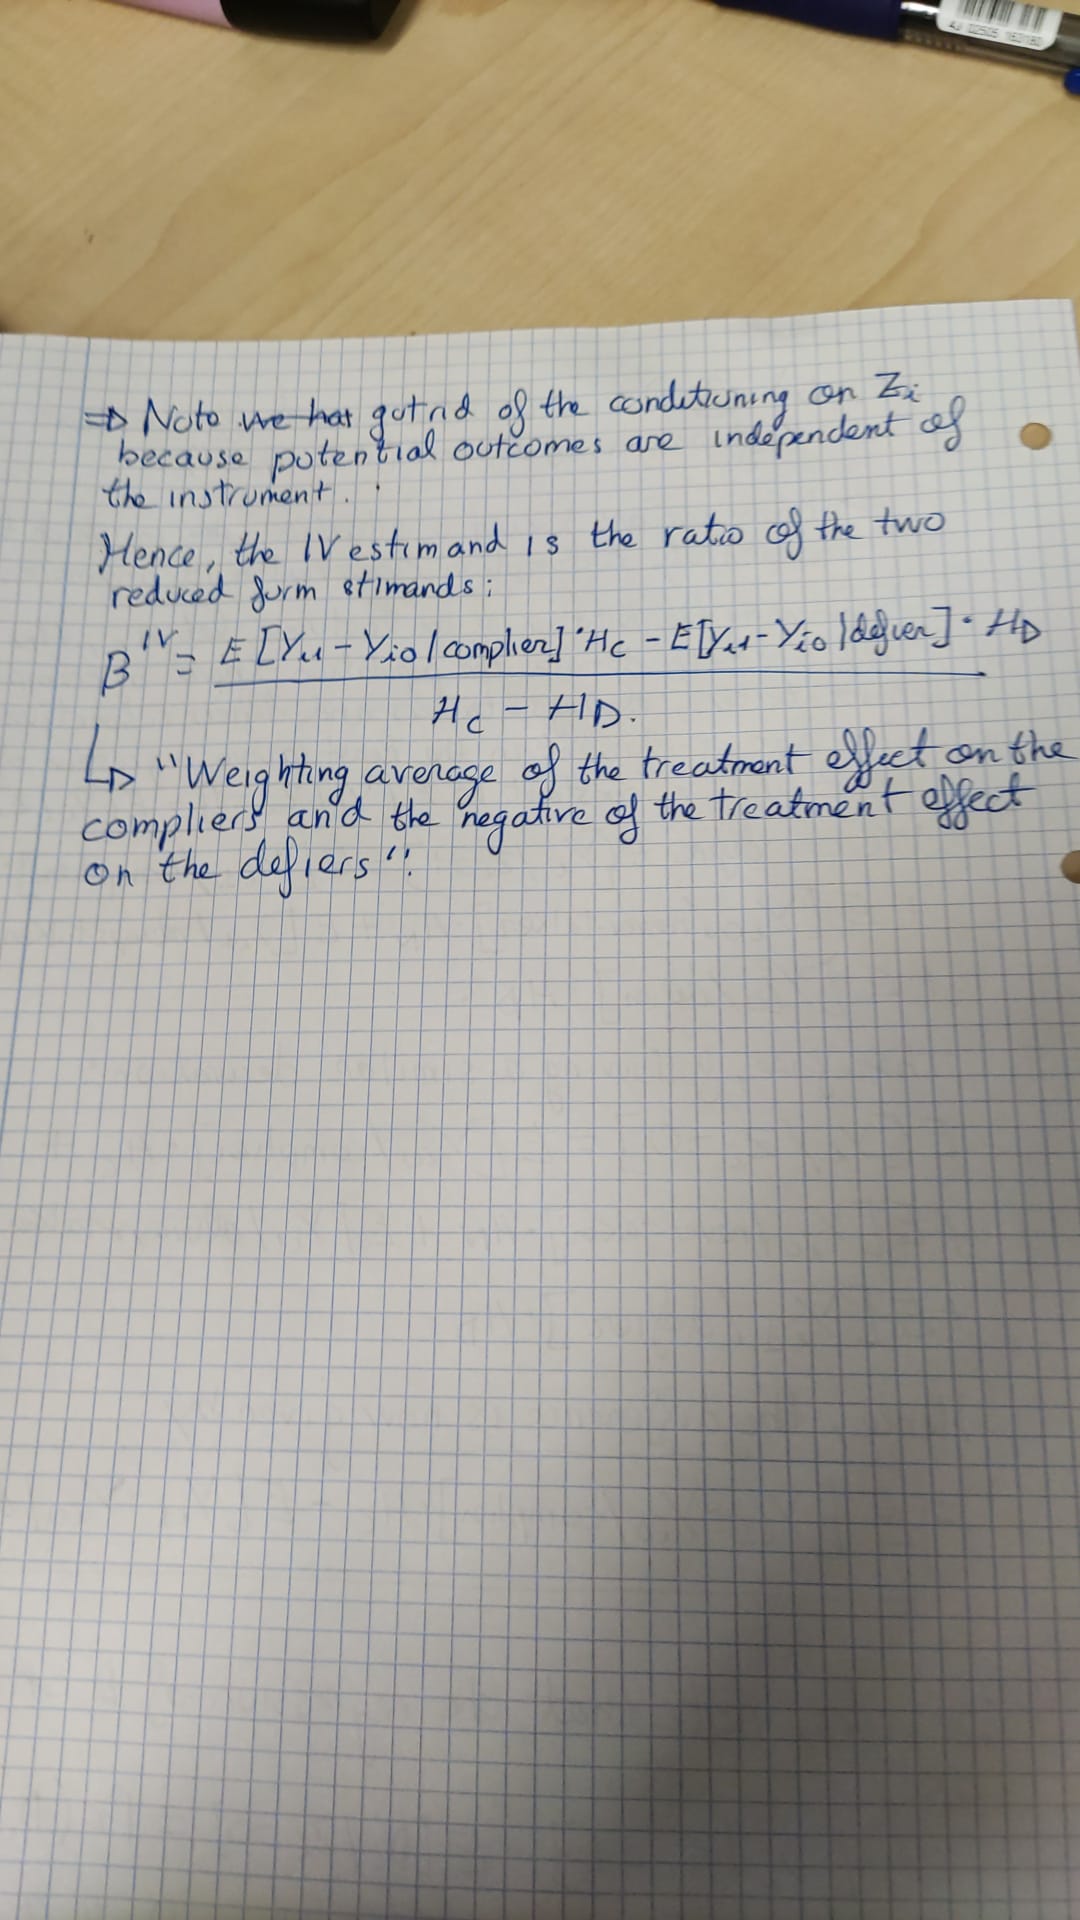 ⇒ Note we hat gotrid of the conditioning on Zi
because potential outcomes are independent of
the instrument.
Hence, the IV estimand is the ratio of the two
reduced form stimands:
B^IV = E[Yi1 - Yi0 | complier] · Hc - E[Yi1 - Yi0 | defier] · HD
Hc - HD.
↳ "Weighting average of the treatment effect on the
compliers and the negative of the treatment effect
on the defiers".